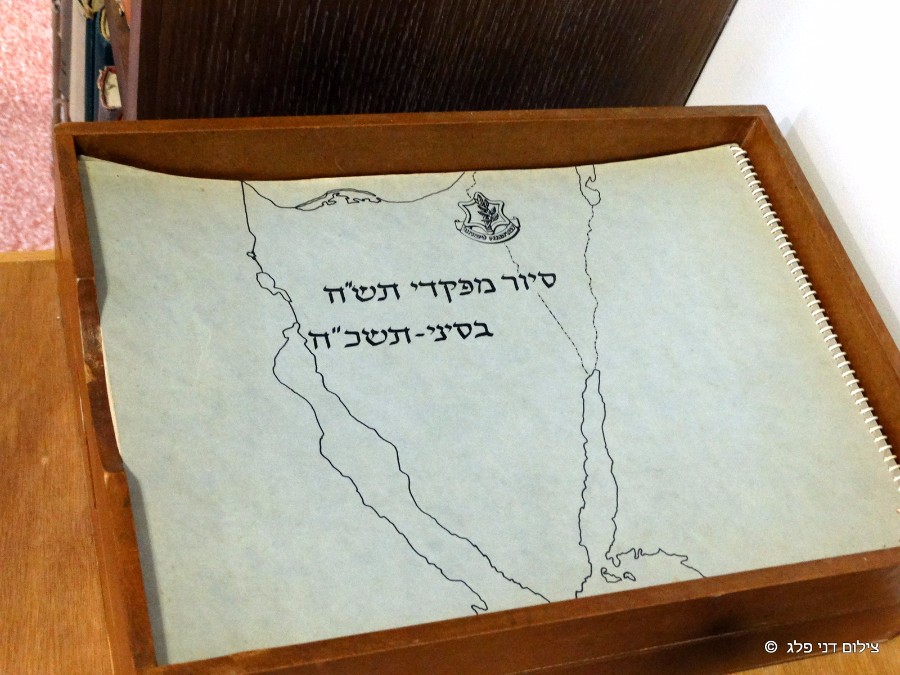 סיור מפקדי תש״ח
בסיני-תשכ״ח
© צילום דני פלג